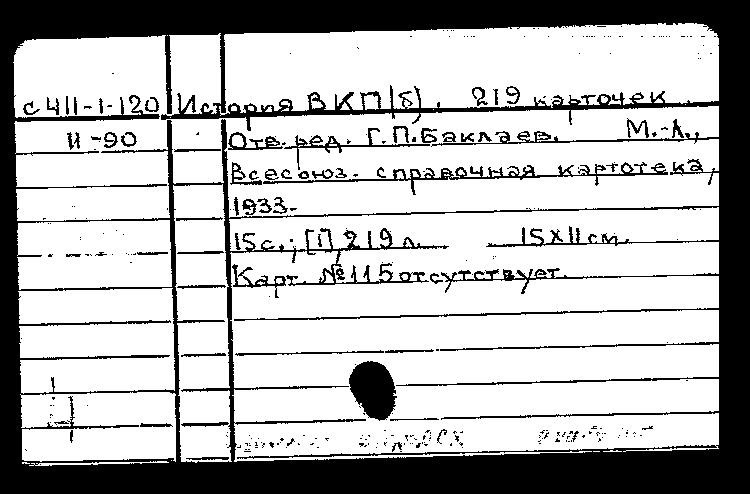 С 411-1-120 История ВКП(б). 219 карточек.
11-90 Отв. ред. Г.П. Баклаев. М.-Л.,
Всесоюз. справочная картотека,
1933.
15с.; [1], 219 л. 15x11см.
Карт. №115 отсутствует.